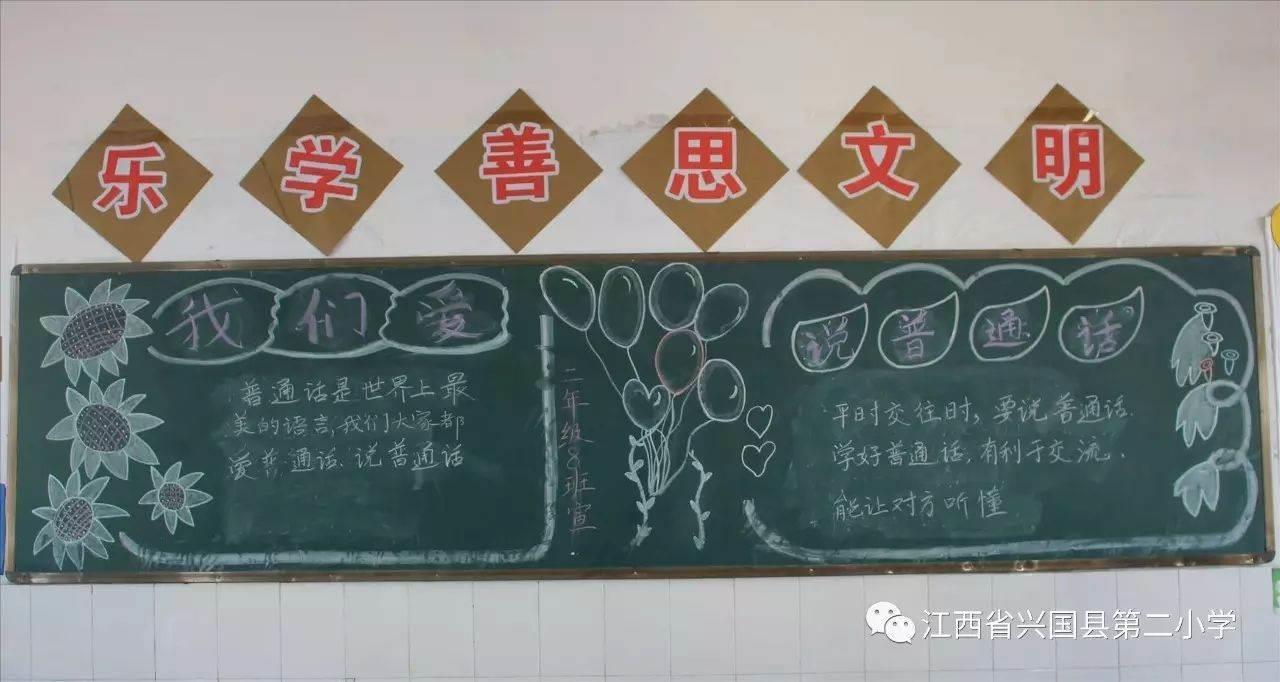 乐学善思文明
我们爱
普通话是世界上最
美的语言,我们大家都
爱普通话.说普通话
二年级8班宣
说普通话
平时交往时,要说普通话.
学好普通话,有利于交流.
能让对方听懂
江西省兴国县第二小学